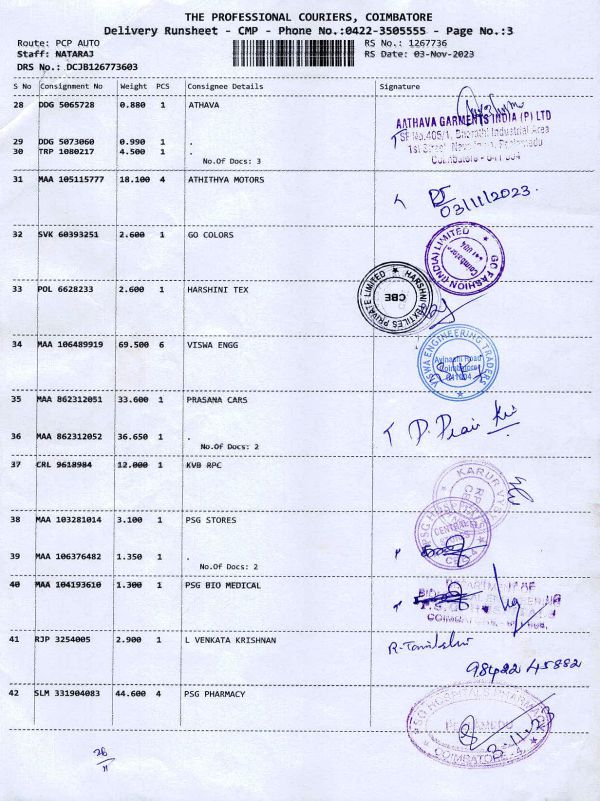 THE PROFESSIONAL COURIERS, COIMBATORE
Delivery Runsheet - CMP - Phone No.:0422-3505555 - Page No.:3
Route: PCP AUTO RS No.: 1267736
Staff: NATARAJ RS Date: 03-Nov-2023
DRS No.: DCJB126773603
S No Consignment No Weight PCS Consignee Details Signature
28 DDG 5065728 0.880 1 ATHAVA
AATHAVA GARMENTS INDIA (P) LTD
SF No.405/1, Bharathi Industrial Area
29 DDG 5073060 0.990 1 .
30 TRP 1080217 4.500 1 .
1st Street,
No.Of Docs: 3
Coimbatore - 641 004
31 MAA 105115777 18.100 4 ATHITHYA MOTORS
03/11/2023.
32 SVK 60393251 2.600 1 GO COLORS
GO FASHION (INDIA) LIMITED
Coimbatore
33 POL 6628233 2.600 1 HARSHINI TEX
HARSHNI TEXTILES PRIVATE LIMITED
CBE
34 MAA 106489919 69.500 6 VISWA ENGG
VISWA ENGINEERING TRADERS
Avinashi Road
Coimbatore
641004
35 MAA 862312051 33.600 1 PRASANA CARS
36 MAA 862312052 36.650 1 .
No.Of Docs: 2
37 CRL 9618984 12.000 1 KVB RPC
KARUR VYSYA
38 MAA 103281014 3.100 1 PSG STORES
CENTRAL
39 MAA 106376482 1.350 1 .
No.Of Docs: 2
40 MAA 104193610 1.300 1 PSG BIO MEDICAL
COIMBATORE
41 RJP 3254005 2.900 1 L VENKATA KRISHNAN
R. Tamilselvi
98422 45882
42 SLM 331904083 44.600 4 PSG PHARMACY
3.11.23
COIMBATORE-4.